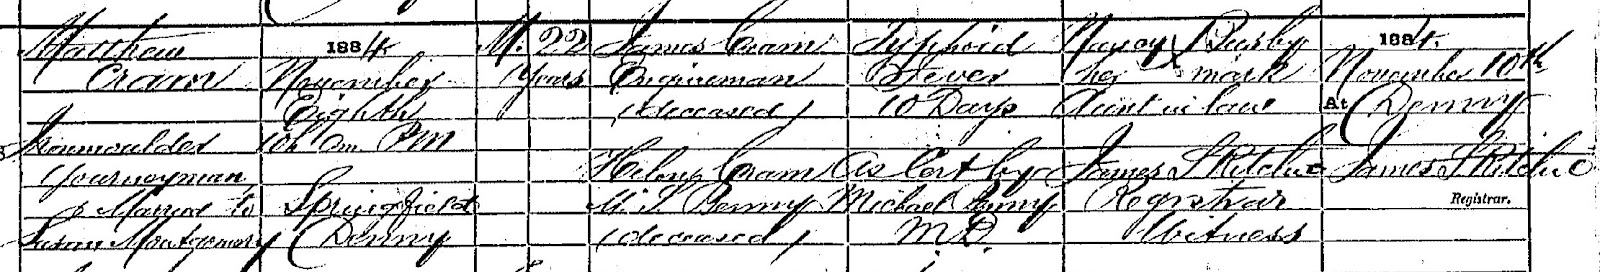 Matthew
Cram
Ironmoulder
Journeyman
Married to
Susan Montgomery
1884
November
Eighth
10h 0m PM
Springfield
Denny
M. 22
Years
James Cram
Engineman
(deceased)
Helen Cram
M. S. Penny
(deceased)
Typhoid
Fever
10 Days
As Cert by
Michael Penny
M.D.
Nancy X Busby
her mark
Aunt in law
James S Ritchie
Registrar
Witness
1884.
November 10th
At Denny
James S Ritchie
Registrar.